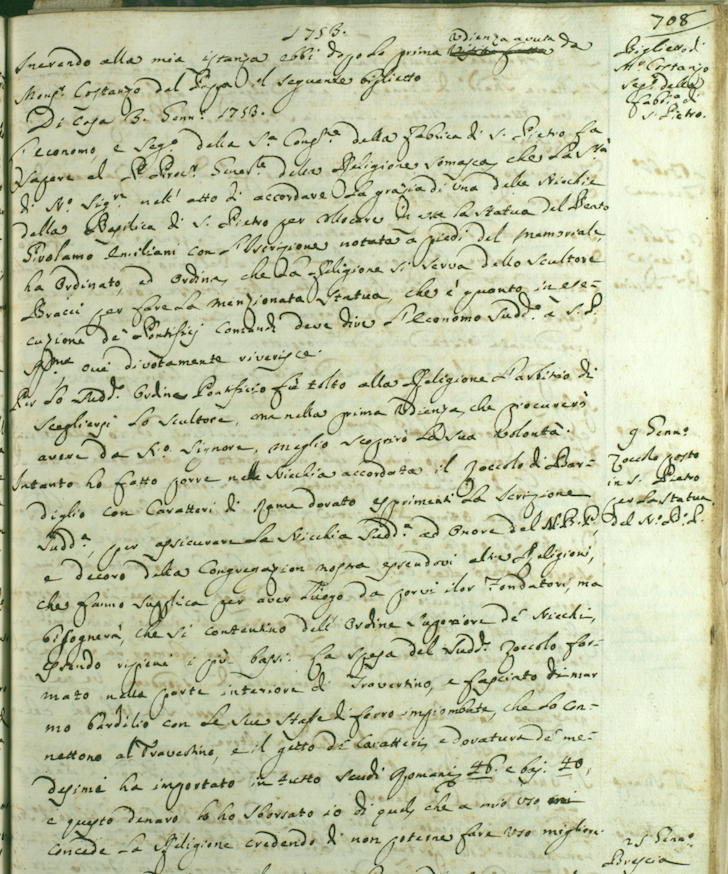 1753.
708
Inerendo alla mia istanza ebbi dopo la prima udienza avuta da
Monsr. Costanzo del Papa il seguente biglietto
Biglietto di
Mr. Costanzo
Segr. della
Fabca. di
S. Pietro.
Di Casa 3. Genno. 1753.
L'economo, e Sego. della Sa. Congne. della Fabrica di S. Pietro fa
sapere al Pre. Procr. Generle. della Religione Somasca, che la Stà.
di No. Sigre. nell'atto di accordare la grazia di una delle Nicchie
della Basilica di S. Pietro per collocare in essa la Statua del Beato
Girolamo Emiliani con l'Iscrizione notata a piedi del memoriale,
ha Ordinato, ed Ordina, che la Religione si serva dello Scultore
Bracci per fare la menzionata Statua, che è quanto in ese-
cuzione de' Pontificj Comandi deve dire l'Economo Sudd.o à S. P.
Rma. cui divotamente riverisce.
Per lo Sudd.o Ordine Pontificio fù tolto alla Religione l'arbitrio di
scegliersi lo Scultore, ma nella prima Udienza, che procurerò
avere da No. Signore, meglio scoprirò la sua volontà.
9 Genno.
Zoccolo posto
in S. Pietro
per la Statua
del No. B. P.
Intanto ho fatto porre nella Nicchia accordata il Zoccolo di Bar-
diglio con Caratteri di Rame dorato esprimenti la Scrizione
Sudd.a, per assicurare la Nicchia Sudd.a ad Onore del N. B. P.,
e decoro della Congregazion nostra essendovi altre Religioni,
che fanno supplica per aver luogo da porvi i lor Fondatori, ma
bisognerà, che si contentino dell'Ordine Superiore de' Nicchi,
essendo ripieni i più bassi. La Spesa del Sudd.o Zoccolo for-
mato nella parte interiore di Travertino, e fasciato di mar
mo bardilio con le sue Staffe di ferro impiombate, che lo con-
nettono al Travertino, e il getto de' Caratteri, e doratura de' me-
desimi ha importato in tutto Scudi Romani 46. e baj. 40,
e questo denaro lo ho sborsato io di quel, che a mio uso
concede la Religione credendo di non poterne fare uso migliore.
25 Genno.
Brescia